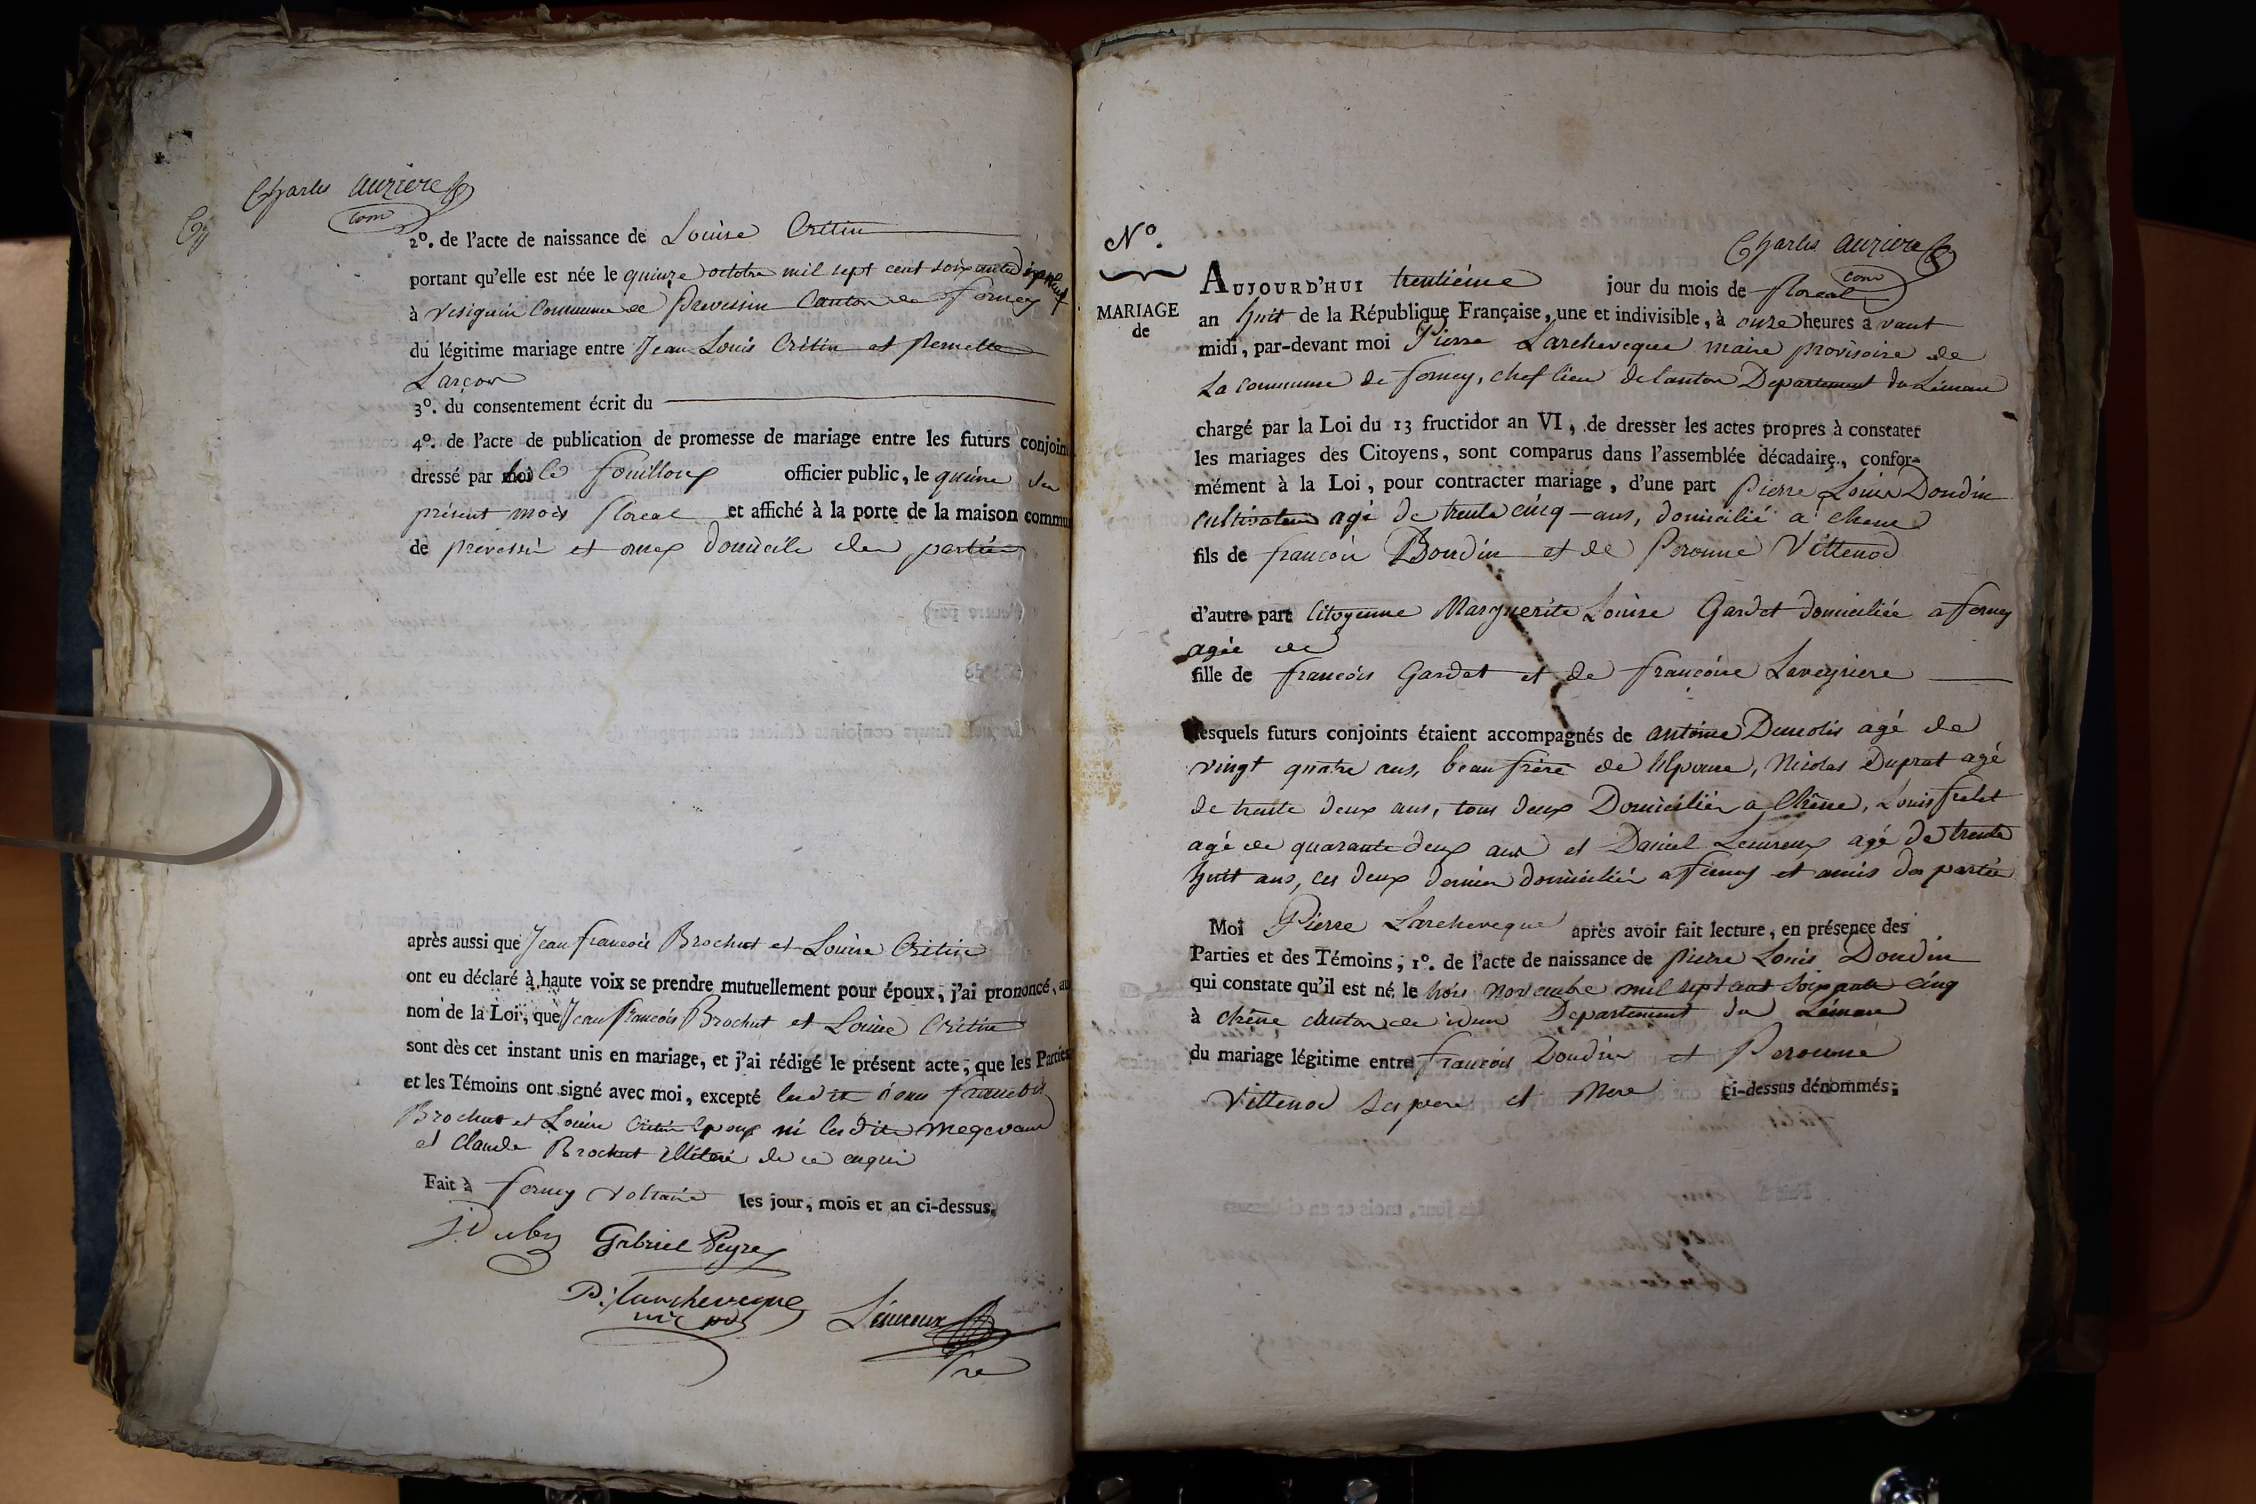 Charles auziere
com
2º. de l'acte de naissance de Louise Critin
portant qu'elle est née le quinze octobre mil sept cent soixante dix neuf
à Vésignin Commune de Prevessin Canton de Ferney
du légitime mariage entre Jean Louis Critin et Pernette
Larçon
3º. du consentement écrit du
4º. de l'acte de publication de promesse de mariage entre les futurs conjoin
dressé par le Cn fouilloux officier public, le quinze du
présent mois floreal et affiché à la porte de la maison commu
de prevessin et ornex domicile des parties
après aussi que Jean francois Brochut et Louise Critin
ont eu déclaré à haute voix se prendre mutuellement pour époux, j'ai prononcé, au
nom de la Loi, que Jean francois Brochut et Louise Critin
sont dès cet instant unis en mariage, et j'ai rédigé le présent acte, que les Parties
et les Témoins ont signé avec moi, excepté lesdits Jean francois
Brochut et Louise Critin Epoux ni lesdits megevand
et Claude Brochut illiteré de ce enquis
Fait à ferney voltaire les jour, mois et an ci-dessus.
J. Duby Gabriel Peyre
P. Larcheveque
Lémeoux
Nº.
MARIAGE
de
Charles auziere
com
AUJOURD'HUI trentiéme jour du mois de floreal
an huit de la République Française, une et indivisible, à onze heures avant
midi, par-devant moi Pierre Larcheveque maire provisoire de
La commune de ferney, chef lieu de Canton Departement du Léman
chargé par la Loi du 13 fructidor an VI, de dresser les actes propres à constater
les mariages des Citoyens, sont comparus dans l'assemblée décadaire, confor-
mément à la Loi, pour contracter mariage, d'une part Pierre Louis Doudin
cultivateur agé de trente cinq ans, domicilié à chene
fils de francois Doudin et de Peronne Vittenod
d'autre part Citoyenne Marguerite Louise Gardet domiciliée a ferney
agée de
fille de francois Gardet et de francoise Laveyriere
lesquels futurs conjoints étaient accompagnés de antoine Dumolis agé de
vingt quatre ans, beau frère de l'Epouse, Nicolas Duprat agé
de trente deux ans, tous deux Domiciliés a Chêne, Louis frelet
agé de quarante deux ans et Daniel Lemreux agé de trente
huit ans, ces deux dernier domiciliés a ferney et amis des parties
Moi Pierre Larcheveque après avoir fait lecture, en présence des
Parties et des Témoins, 1º. de l'acte de naissance de pierre Louis Doudin
qui constate qu'il est né le trois Novembre mil sept cent soixante cinq
à chêne canton de idem Departement du Léman
du mariage légitime entre francois Doudin et Peronne
Vittenod ses pere et Mere ci-dessus dénommés;